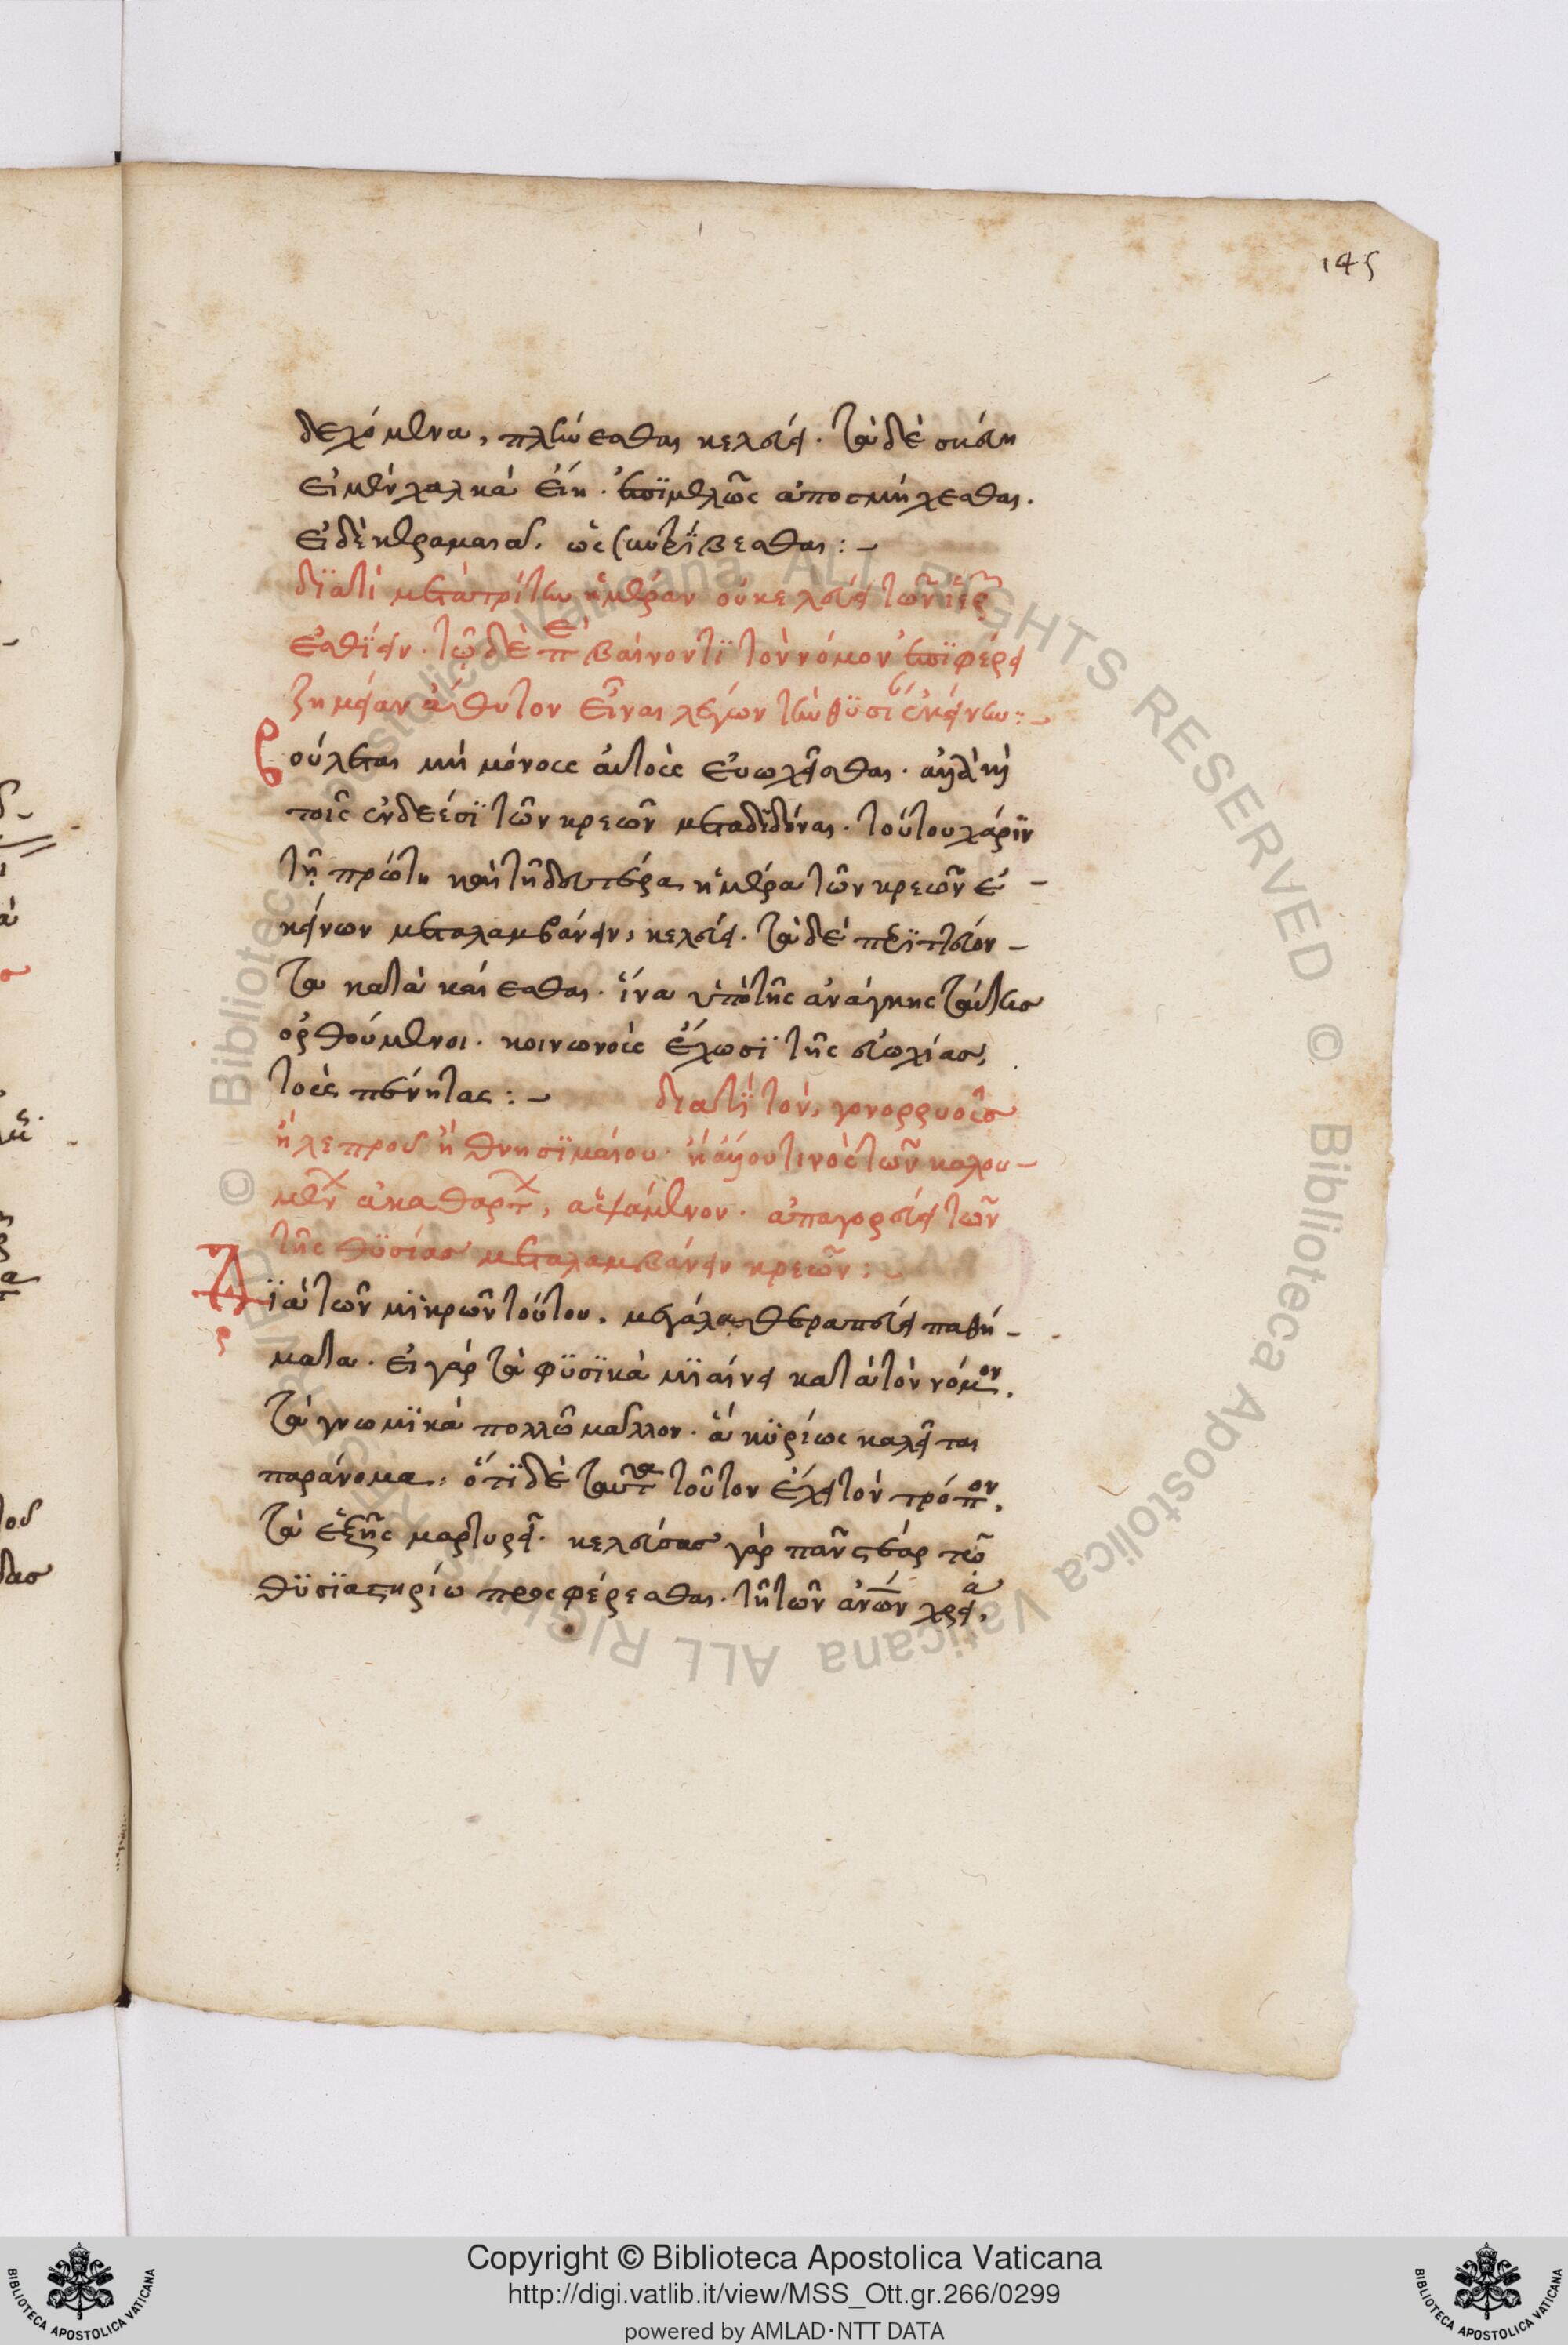 145
δεχόμενα, πλύνεσθαι κελεύει. τὰ δὲ σκεύη
εἰ μὲν χαλκὰ εἴη. ἐπιμελῶς ἀποσμήχεσθαι.
εἰ δὲ κεραμαια. ὡς συντρίβεσθαι:-
διατί μετὰ τρίτην ἡμέραν οὐ κελεύει τῶν ἱερῶν
ἐσθίειν. τῶ δὲ παραβαίνοντι τὸν νόμον ἐπιφέρει
ζημείαν ἄθυτον εἶναι λέγων τὴν θυσίαν ἐκείνην:-
βούλεται μὴ μόνους αὐτοὺς εὐωχεῖσθαι. ἀλλὰ καὶ
τοῖς ἐνδεέσι τῶν κρεῶν μεταδιδόναι. τούτου χάριν
τῇ πρώτη καὶ τῇ δευτέρα ἡμέρα τῶν κρεῶν ἐ-
κείνων μεταλαμβάνειν, κελεύει. τὰ δὲ περιττεύον-
τα κατὰ καίεσθαι. ἵνα ὑπὸ τῆς ἀνάγκης ταύτης
ὀρθούμενοι. κοινωνοὺς ἔχωσι τῆς εὐωχίας,
τοὺς πένητας:- διατί τὸν, γονορρυοῦς
ἢ λεπροῦ ἢ θνησιμαίου. ἢ ἄλλου τινὸς τῶν καλου-
μένων ἀκαθάρτων, ἁψάμενον. ἀπαγορεύει τῶν
τῆς θυσίας μεταλαμβάνειν κρεῶν:-
Διὰ τῶν μικρῶν τούτου, μεγάλα θεραπεύει παθή-
ματα. εἰ γὰρ τὰ φυσικὰ μιαίνει κατὰ τὸν νόμον.
τὰ γνωμικὰ πολλῶ μαλλον. ἃ κυρίως καλεῖται
παράνομα. ὅτι δὲ ταῦτα τοῦτον ἔχει τὸν τρόπον,
τὰ ἑξῆς μαρτυρεῖ. κελεύσας γὰρ πᾶν στέαρ τῶ
θυσιαστηρίω προσφέρεσθαι. τῇ τῶν ἀνων χρεία,
Copyright © Biblioteca Apostolica Vaticana
http://digi.vatlib.it/view/MSS_Ott.gr.266/0299
powered by AMLAD·NTT DATA
© Biblioteca Apostolica Vaticana ALL RIGHTS RESERVED
BIBLIOTECA APOSTOLICA VATICANA
BIBLIOTECA APOSTOLICA VATICANA